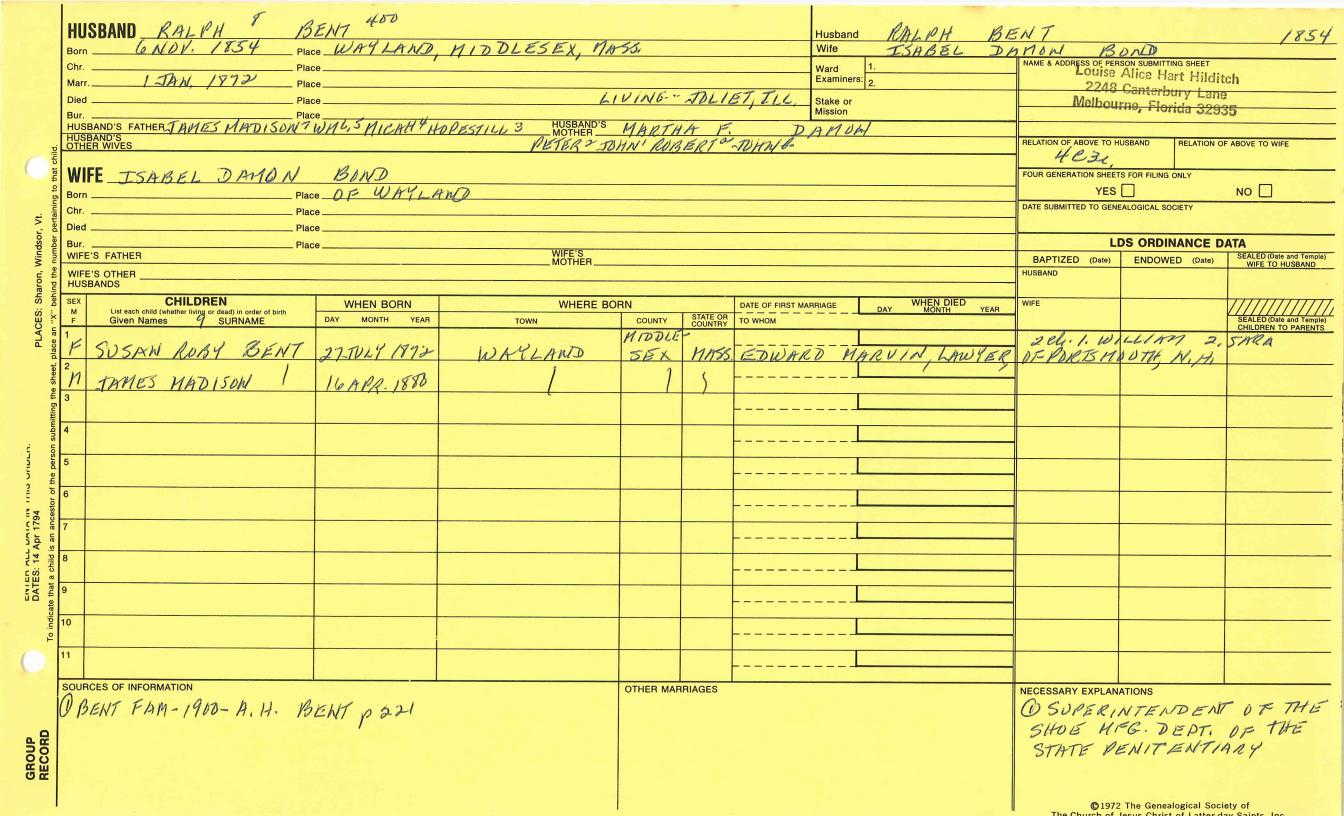 HUSBAND RALPH 8 BENT 400
Born 6 NOV. 1854 Place WAYLAND, MIDDLESEX, MASS.
Chr. Place
Marr. 1 JAN, 1872 Place
Died Place LIVING-- JOLIET, ILL.
Bur. Place
HUSBAND'S FATHER JAMES MADISON 7 WM 6, 5 MICAH 4 HOPESTILL 3 HUSBAND'S MOTHER MARTHA F. DAMON
HUSBAND'S OTHER WIVES PETER 2 JOHN 1 ROBERT
Husband RALPH BENT 1854
Wife ISABEL DAMON BOND
Ward Examiners: 1.
2.
Stake or Mission
NAME & ADDRESS OF PERSON SUBMITTING SHEET
Louise Alice Hart Hilditch
2248 Canterbury Lane
Melbourne, Florida 32935
RELATION OF ABOVE TO HUSBAND RELATION OF ABOVE TO WIFE
FOUR GENERATION SHEETS FOR FILING ONLY
YES NO
DATE SUBMITTED TO GENEALOGICAL SOCIETY
WIFE ISABEL DAMON BOND
Born Place OF WAYLAND
Chr. Place
Died Place
Bur. Place
WIFE'S FATHER WIFE'S MOTHER
WIFE'S OTHER HUSBANDS
LDS ORDINANCE DATA
BAPTIZED (Date) ENDOWED (Date) SEALED (Date and Temple) WIFE TO HUSBAND
HUSBAND
WIFE
SEALED (Date and Temple) CHILDREN TO PARENTS
SEX M F CHILDREN List each child (whether living or dead) in order of birth Given Names 9 SURNAME
WHEN BORN DAY MONTH YEAR
WHERE BORN TOWN COUNTY STATE OR COUNTRY
DATE OF FIRST MARRIAGE TO WHOM
WHEN DIED DAY MONTH YEAR
1 F SUSAN ROBY BENT 27 JULY 1872 WAYLAND MIDDLE-SEX MASS. EDWARD MARVIN, LAWYER, OF PORTSMOUTH, N.H. 2 ch. 1. WILLIAM 2. SARA
2 M JAMES MADISON 16 APR. 1880
3
4
5
6
7
8
9
10
11
SOURCES OF INFORMATION
① BENT FAM-1900- A.H. BENT p 221
OTHER MARRIAGES
NECESSARY EXPLANATIONS
① SUPERINTENDENT OF THE
SHOE MFG. DEPT. OF THE
STATE PENITENTIARY
©1972 The Genealogical Society of
The Church of Jesus Christ of Latter-day Saints, Inc.
GROUP RECORD
ENTER ALL DATA IN THIS ORDER:
DATES: 14 Apr 1794
PLACES: Sharon, Windsor, Vt.
To indicate that a child is an ancestor of the person submitting the sheet, place an "X" behind the number pertaining to that child.